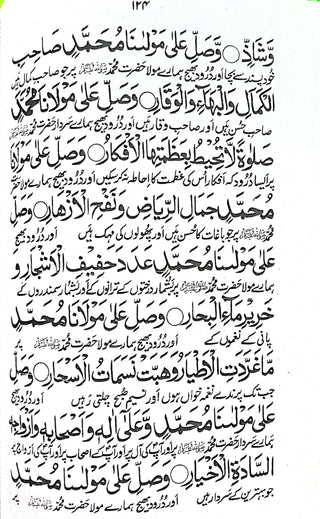 ۱۲۴
وَّشَاذٍّ ○ وَصَلِّ عَلٰی مَوْلٰىنَا مُحَمَّدٍ صَاحِبِ
اور درود بھیج ہمارے مولا حضرت محمد ﷺ پر جو صاحب کمال ہیں
الْكَمَالِ وَالْبَهَآءِ وَالْوَقَارِ ○ وَصَلِّ عَلٰی مَوْلَانَا مُحَمَّدٍ
صاحب حسن ہیں اور صاحب وقار ہیں اور درود بھیج ہمارے سردار حضرت محمد ﷺ
صَلٰوةً لَّا تُحِيْطُ بِعَظَمَتِهَا الْاَفْكَارُ ○ وَصَلِّ عَلٰی مَوْلَانَا
پر ایسا درود کہ افکار اس کی عظمت کا احاطہ نہ کر سکیں اور درود بھیج ہمارے مولا حضرت
مُحَمَّدٍ جَمَالِ الرِّيَاضِ وَنَفْحِ الْاَزْهَارِ ○ وَصَلِّ
محمد ﷺ پر جو باغات کا حسن ہیں اور پھولوں کی مہک ہیں اور درود بھیج
عَلٰی مَوْلٰىنَا مُحَمَّدٍ عَدَدَ حَفِيْفِ الْاَشْجَارِ وَ
ہمارے مولا حضرت محمد ﷺ پر بشمار درختوں کے ترانوں کے اور بشمار سمندروں کے
خَرِيْرِ مَآءِ الْبِحَارِ ○ وَصَلِّ عَلٰی مَوْلَانَا مُحَمَّدٍ
پانی کے نغموں کے اور درود بھیج ہمارے مولا حضرت محمد ﷺ پر
مَّا غَرَّدَتِ الْاَطْيَارُ وَهَبَّتْ نَسَمَاتُ الْاَسْحَارِ ○ وَصَلِّ
جب تک پرندے نغمہ خواں ہوں اور نسیم صبح چلتی رہیں اور درود بھیج
عَلٰی مَوْلٰىنَا مُحَمَّدٍ وَّعَلٰی اٰلِهٖ وَاَصْحَابِهٖ وَاَزْوَاجِهِ
ہمارے سردار حضرت محمد ﷺ پر اور آپ کی آل پر اور آپ کے اصحاب پر اور آپ کی ازواج پر
السَّادَةِ الْاَخْيَارِ ○ وَصَلِّ عَلٰی مَوْلٰىنَا مُحَمَّدٍ
جو بہترین کے سردار ہیں اور درود بھیج ہمارے مولا حضرت محمد ﷺ پر